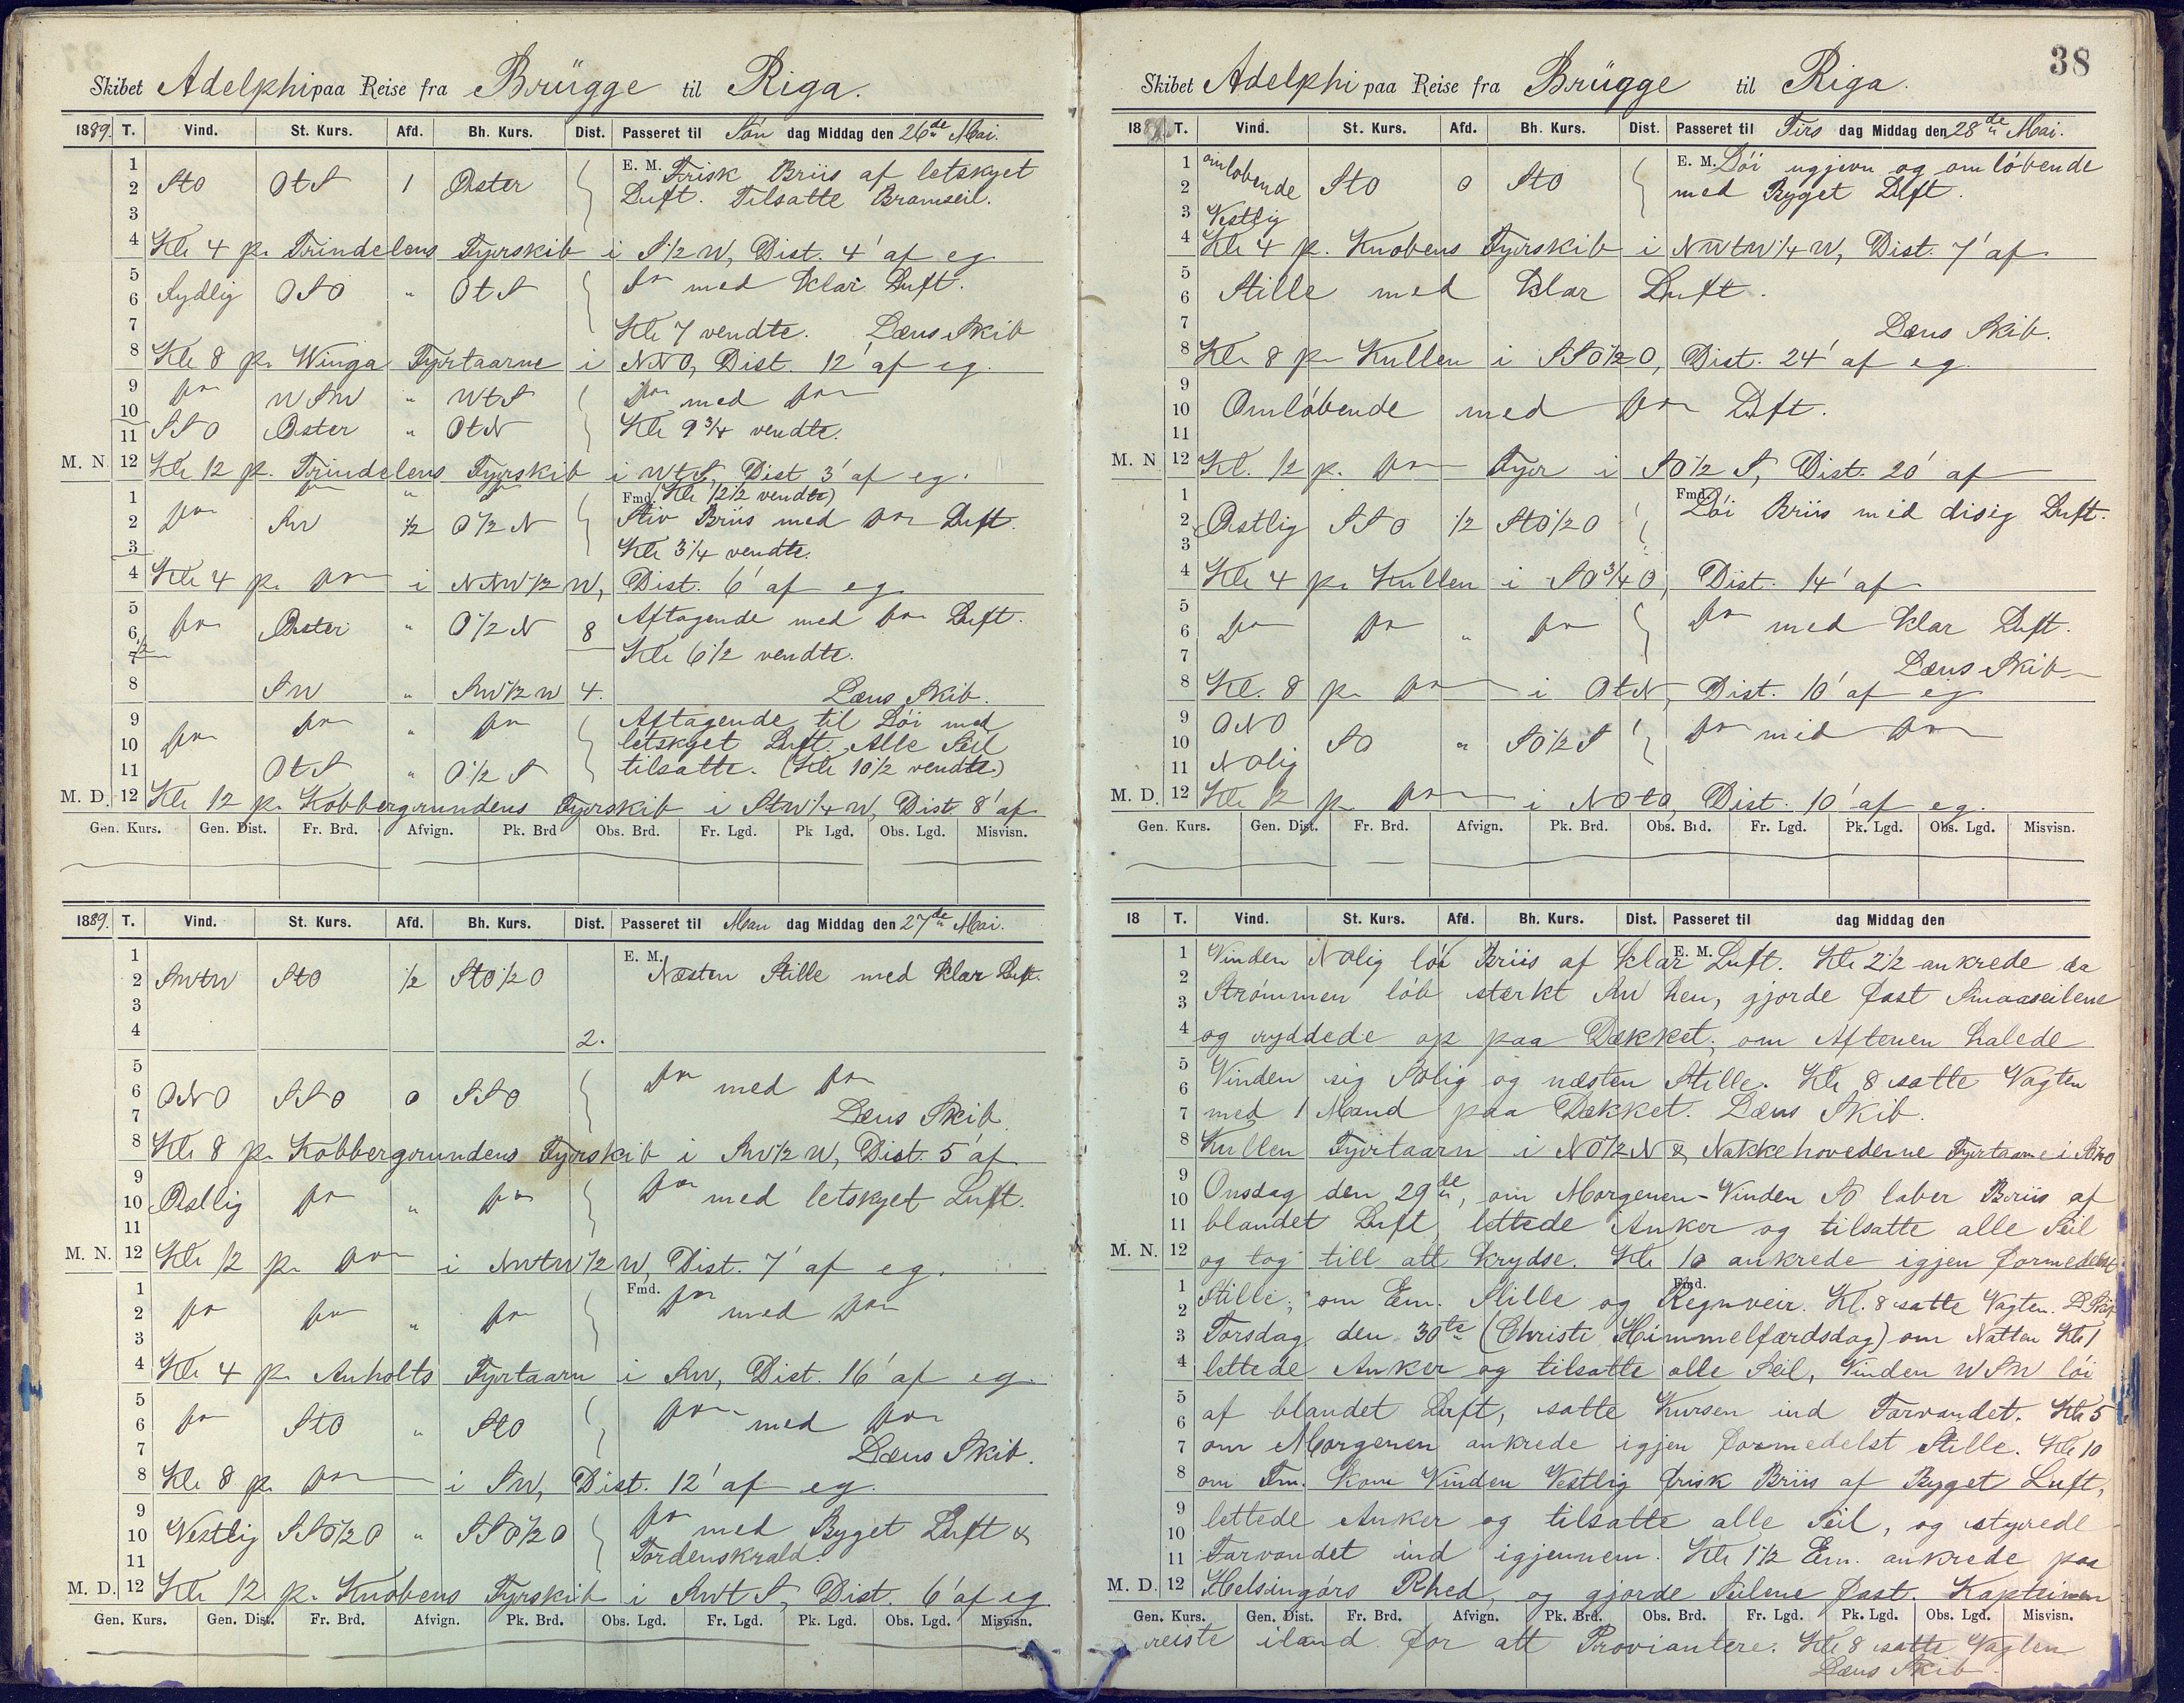 Skibet Adelphi paa Reise fra Brügge til Riga.
1889. T. Vind. St. Kurs. Afd. Bh. Kurs. Dist. Passeret til Søn dag Middag den 26de Mai.
1 E. M. Frisk Briis af letskyet
2 StO OtS 1 Øster Luft. Tilsatte Bramseil.
3
4 Kle 4 p. Trindelens Fyrskib i S1/2W, Dist. 4' af eg.
5 do med klar Luft.
6 Sydlig OSO " OtS
7 Kle 7 vendte. Læns Skib
8 Kle 8 p. Winga Fyrtaarne i NNO, Dist. 12' af eg.
9 do WSW " WtS do med do
10
11 SSO Øster " OtN Kle 9 3/4 vendte.
M. N. 12 Kle 12 p. Trindelens Fyrskib i WtS, Dist 3' af eg.
1 do " do Fmd. (Kle 12 1/2 vendte)
2 do SW 1/2 O1/2N Stiv Briis med do Luft.
3 Kle 3 1/4 vendte.
4 Kle 4 p. do i NNW1/2W, Dist. 6' af eg.
5 Aftagende med do Luft.
6 do Øster " O1/2N 8
7 Kle 6 1/2 vendte.
8 SW " SW1/2W 4. Læns Skib.
9 do do " do Aftagende til Løi med
10 letskyet Luft. Alle Seil
11 OtS " O1/2S tilsatte. (Kle 10 1/2 vendte.)
M. D. 12 Kle 12 p. Kobbergrundens Fyrskib i StW1/4W, Dist. 8' af
Gen. Kurs. Gen. Dist. Fr. Brd. Afvign. Pk. Brd Obs. Brd. Fr. Lgd. Pk Lgd. Obs. Lgd. Misvisn.
1889. T. Vind. St. Kurs. Afd. Bh. Kurs. Dist. Passeret til Man dag Middag den 27de Mai.
1 E. M.
2 SWtW StO 1/2 StO1/2O Næsten Stille med klar Luft.
3
4 2.
5
6 ONO SSO 0 SSO do med do
7 Læns Skib.
8 Kle 8 p. Kobbergrundens Fyrskib i SW1/2W, Dist. 5' af
9
10 Østlig do " do do med letskyet Luft.
11
M. N. 12 Kle 12 p. do i NWtW1/2W, Dist. 7' af eg.
1 Fmd.
2 do do " do do med do
3
4 Kle 4 p. Anholts Fyrtaarn i SW, Dist. 16' af eg.
5
6 do StO " StO do med do
7 Læns Skib.
8 Kle 8 p. do i SW, Dist. 12' af eg.
9
10 Vestlig SSO1/2O " SSO1/2O do med Byget Luft &
11 Tordenskrald.
M. D. 12 Kle 12 p. Knobens Fyrskib i SWtS, Dist. 6' af eg
Gen. Kurs. Gen. Dist. Fr. Brd. Afvign. Pk. Brd. Obs. Lgd. Fr. Lgd. Pk. Lgd. Obs. Lgd. Misvisn.
38
Skibet Adelphi paa Reise fra Brügge til Riga.
1889. T. Vind. St. Kurs. Afd. Bh. Kurs. Dist. Passeret til Tirs dag Middag den 28de Mai.
1 omløbende E. M. Løi ugjevn og omløbende
2 StO 0 StO med Byget Luft.
3 Vestlig
4 Kle 4 p. Knobens Fyrskib i NWtW1/4W, Dist. 7' af
5
6 Stille med klar Luft.
7 Læns Skib.
8 Kle 8 p. Kullen i SSO1/2O, Dist. 24' af eg.
9
10 Omløbende med do Luft.
11
M. N 12 Kl. 12 p. do Fyr i SO1/2S, Dist. 20' af
1 Fmd. Løi Briis med disig Luft.
2 Østlig SSO 1/2 StO1/2O
3
4 Kle 4 p. Kullen i SO3/4O, Dist. 14' af
5
6 do do " do do med klar Luft.
7 Læns Skib
8 Kl. 8 p. do i OtN, Dist. 10' af eg
9 ONO
10 SO " SO1/2S do med do
11 NOlig
M. D. 12 Kle 12 p. do i NOtO, Dist. 10' af eg.
Gen. Kurs. Gen. Dist. Fr. Brd. Afvign. Pk. Brd. Obs. Brd. Fr. Lgd. Pk. Lgd. Obs. Lgd. Misvisn.
18 T. Vind. St. Kurs. Afd. Bh. Kurs. Dist. Passeret til dag Middag den
1 Vinden NOlig løi Briis af klar E. M. Luft. Kle 2 1/2 ankrede da
2
3 Strømmen løb sterkt SW hen, gjorde fast Smaaseilene
4 og ryddede op paa Dækket; om Aftenen halede
5
6 Vinden sig SOlig og næsten Stille. Kle 8 satte Vagten
7 med 1 Mand paa Dækket. Læns Skib.
8 Kullen Fyrtaarn i NO1/2N & Nakkehovederne Fyrtaarne i
9
10 Onsdag den 29de, om Morgenen - Vinden SO laber Briis af
11 blandet Luft, lettede Anker og tilsatte alle Seil
M. N. 12 og tog till att krydse. Kle 10 ankrede igjen formedelst
1 Fmd.
2 Stille; om Em. Stille og Regnveir. Kl. 8 satte Vagten. L. Skib
3 Torsdag den 30te (Christi Himmelfærdsdag) om Natten Kle 1
4 lettede Anker og tilsatte alle Seil, Vinden WSW løi
5
6 af blandet Luft, satte Kursen ind Farvandet. Kle 5
7 om Morgenen ankrede igjen formedelst Stille. Kle 10
8 om Fm. kom Vinden Vestlig frisk Briis af Byget Luft,
9 lettede Anker og tilsatte alle Seil, og styrede
10
11 Farvandet ind igjennem. Kle 1 1/2 Em. ankrede paa
M. D. 12 Helsingørs Rhed, og gjorde Seilene fast. Kapteinen
Gen. Kurs. Gen. Dist. Fr. Brd. Afvign. Pk. Brd. Obs. Brd. Fr. Lgd. Pk. Lgd. Obs. Lgd. Misvisn.
reiste iland for att Proviantere. Kle 8 satte Vagten
Læns Skib.